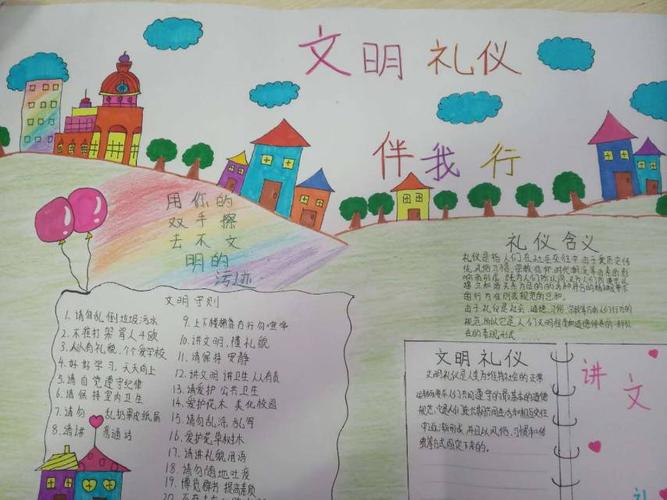 文明礼仪
伴我行
用你的
双手擦
去不文
明的
污迹
文明守则
1、请勿乱倒垃圾污水
2、不在打架骂人斗殴
3、人人有礼貌，个个爱学校
4、好好学习，天天向上
5、请自觉遵守纪律
6、请保持室内卫生
7、请勿 乱扔果皮纸屑
8、请讲 普通话
9、上下楼梯靠右行勿喧哗
10、讲文明，懂礼貌
11、请保持安静
12、讲文明 讲卫生 人人有责
13、请爱护公共卫生
14、爱护花木 美化校园
15、请勿乱涂乱写
16、爱护花草树木
17、请讲礼貌用语
18、请勿随地吐痰
19、博览群书 提高素质
礼仪含义
礼仪是指人们在社会交往中由于受历史传
统、风俗习惯、宗教信仰、时代潮流等因素而影
由于礼仪是社会、道德、习俗、宗教等方面人们行为的
规范，所以它是人们文明程度和道德修养的一种外
在的表现形式
文明礼仪
文明礼仪是人类为维持社会的正常
生活
规范，它是人们在长期共同生活和相互交往
中逐渐形成，并且以风俗、习惯和传
统等方式固定下来的。
讲文
礼